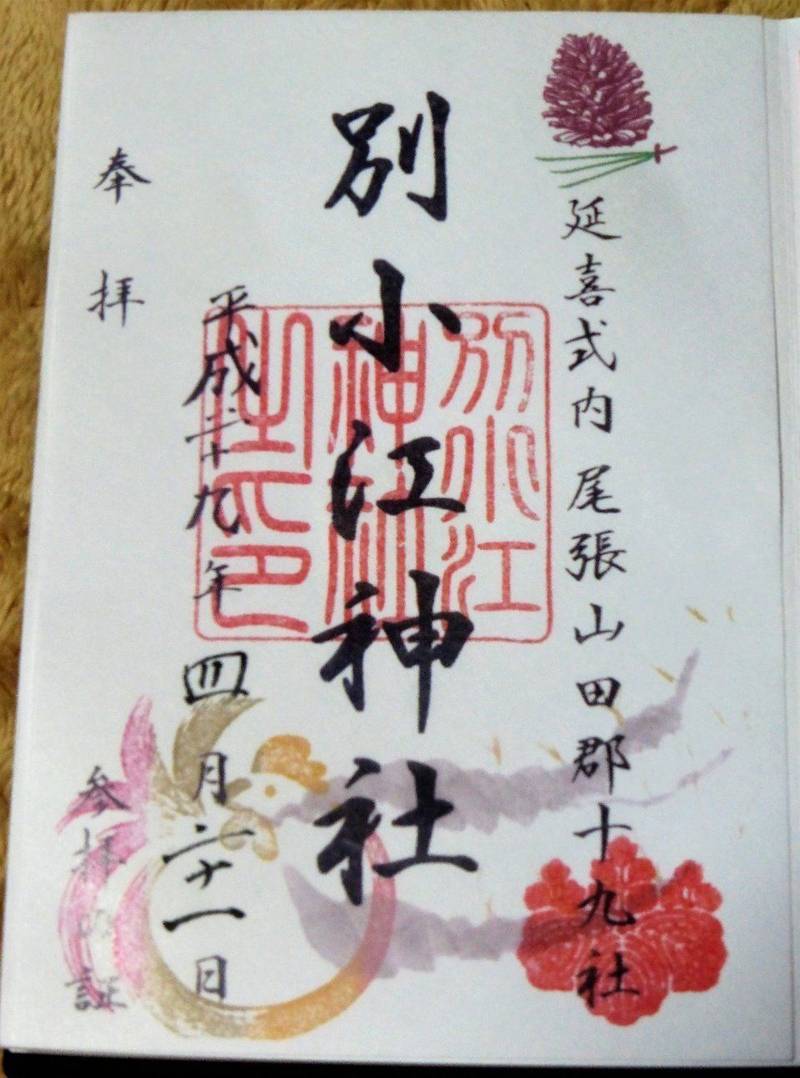 延喜式内 尾張山田郡十九社
別小江神社
別小江
神社
之印
平成二十九年四月二十一日
奉拝
参拝の証